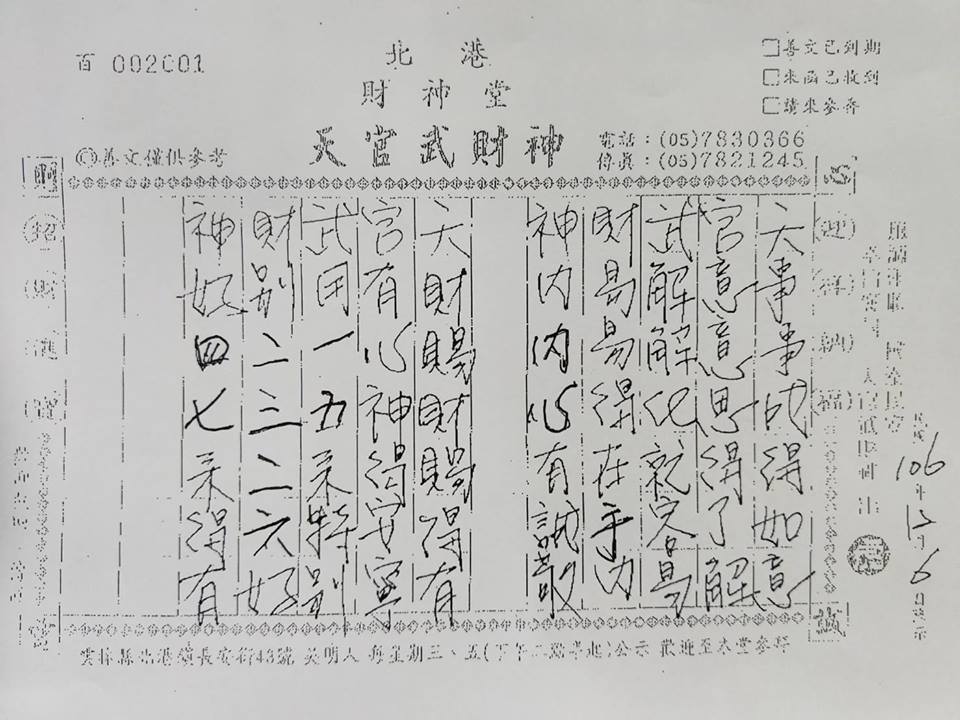 百 002001
北港
財神堂
天官武財神
◎善文僅供參考
電話:(05)7830366
傳真:(05)7821245
□善文已到期
□來函已收到
□請來參香
迎祥納福
招財進寶
106年12月6日
天事事成得如意
官意意思得了解
武解解化就容易
財易易得在手內
神內內心有誠敬
天財賜財賜得有
官有心神得安寧
武用一五來特別
財別二三二六好
神好四七來得有
雲林縣北港鎮長安街43號 吳明人 每星期三、五(下午二點半起)公示 歡迎至本堂參拜